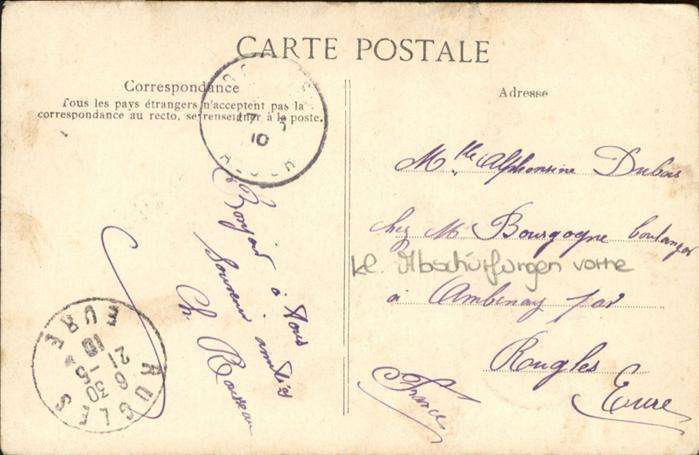 CARTE POSTALE
Correspondance
Tous les pays étrangers n'acceptent pas la
correspondance au recto, se renseigner à la poste.
Adresse
10
Bonjour à tous
Souvenir amitiés
Ch. Rousseau
Mlle Alphonsine Dubois
chez Mr Bourgogne boulanger
kl. Abschürfungen vorne
à Ambenay par
Rugles
Eure
(France)
RUGLES
EURE